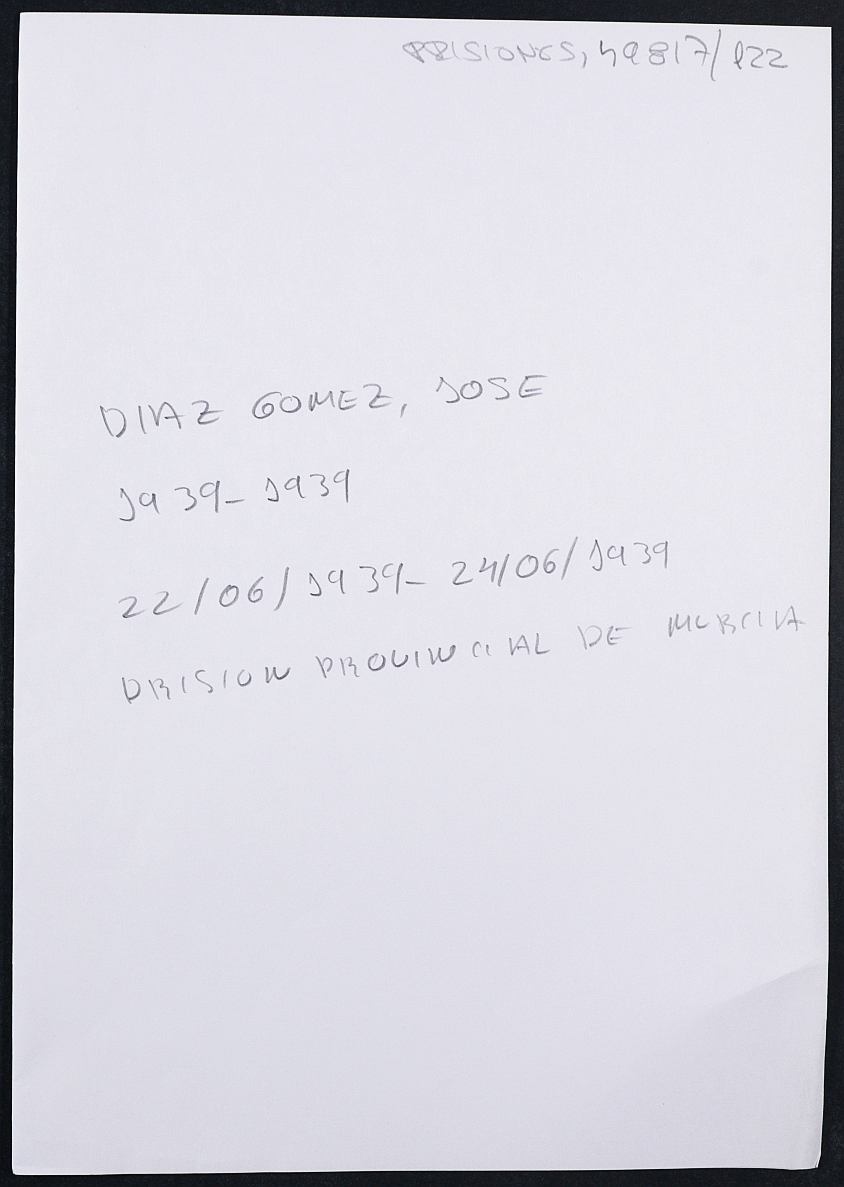 PRISIONES, 49817/122
DIAZ GOMEZ, JOSE
1939-1939
22/06/1939-24/06/1939
PRISION PROVINCIAL DE MURCIA